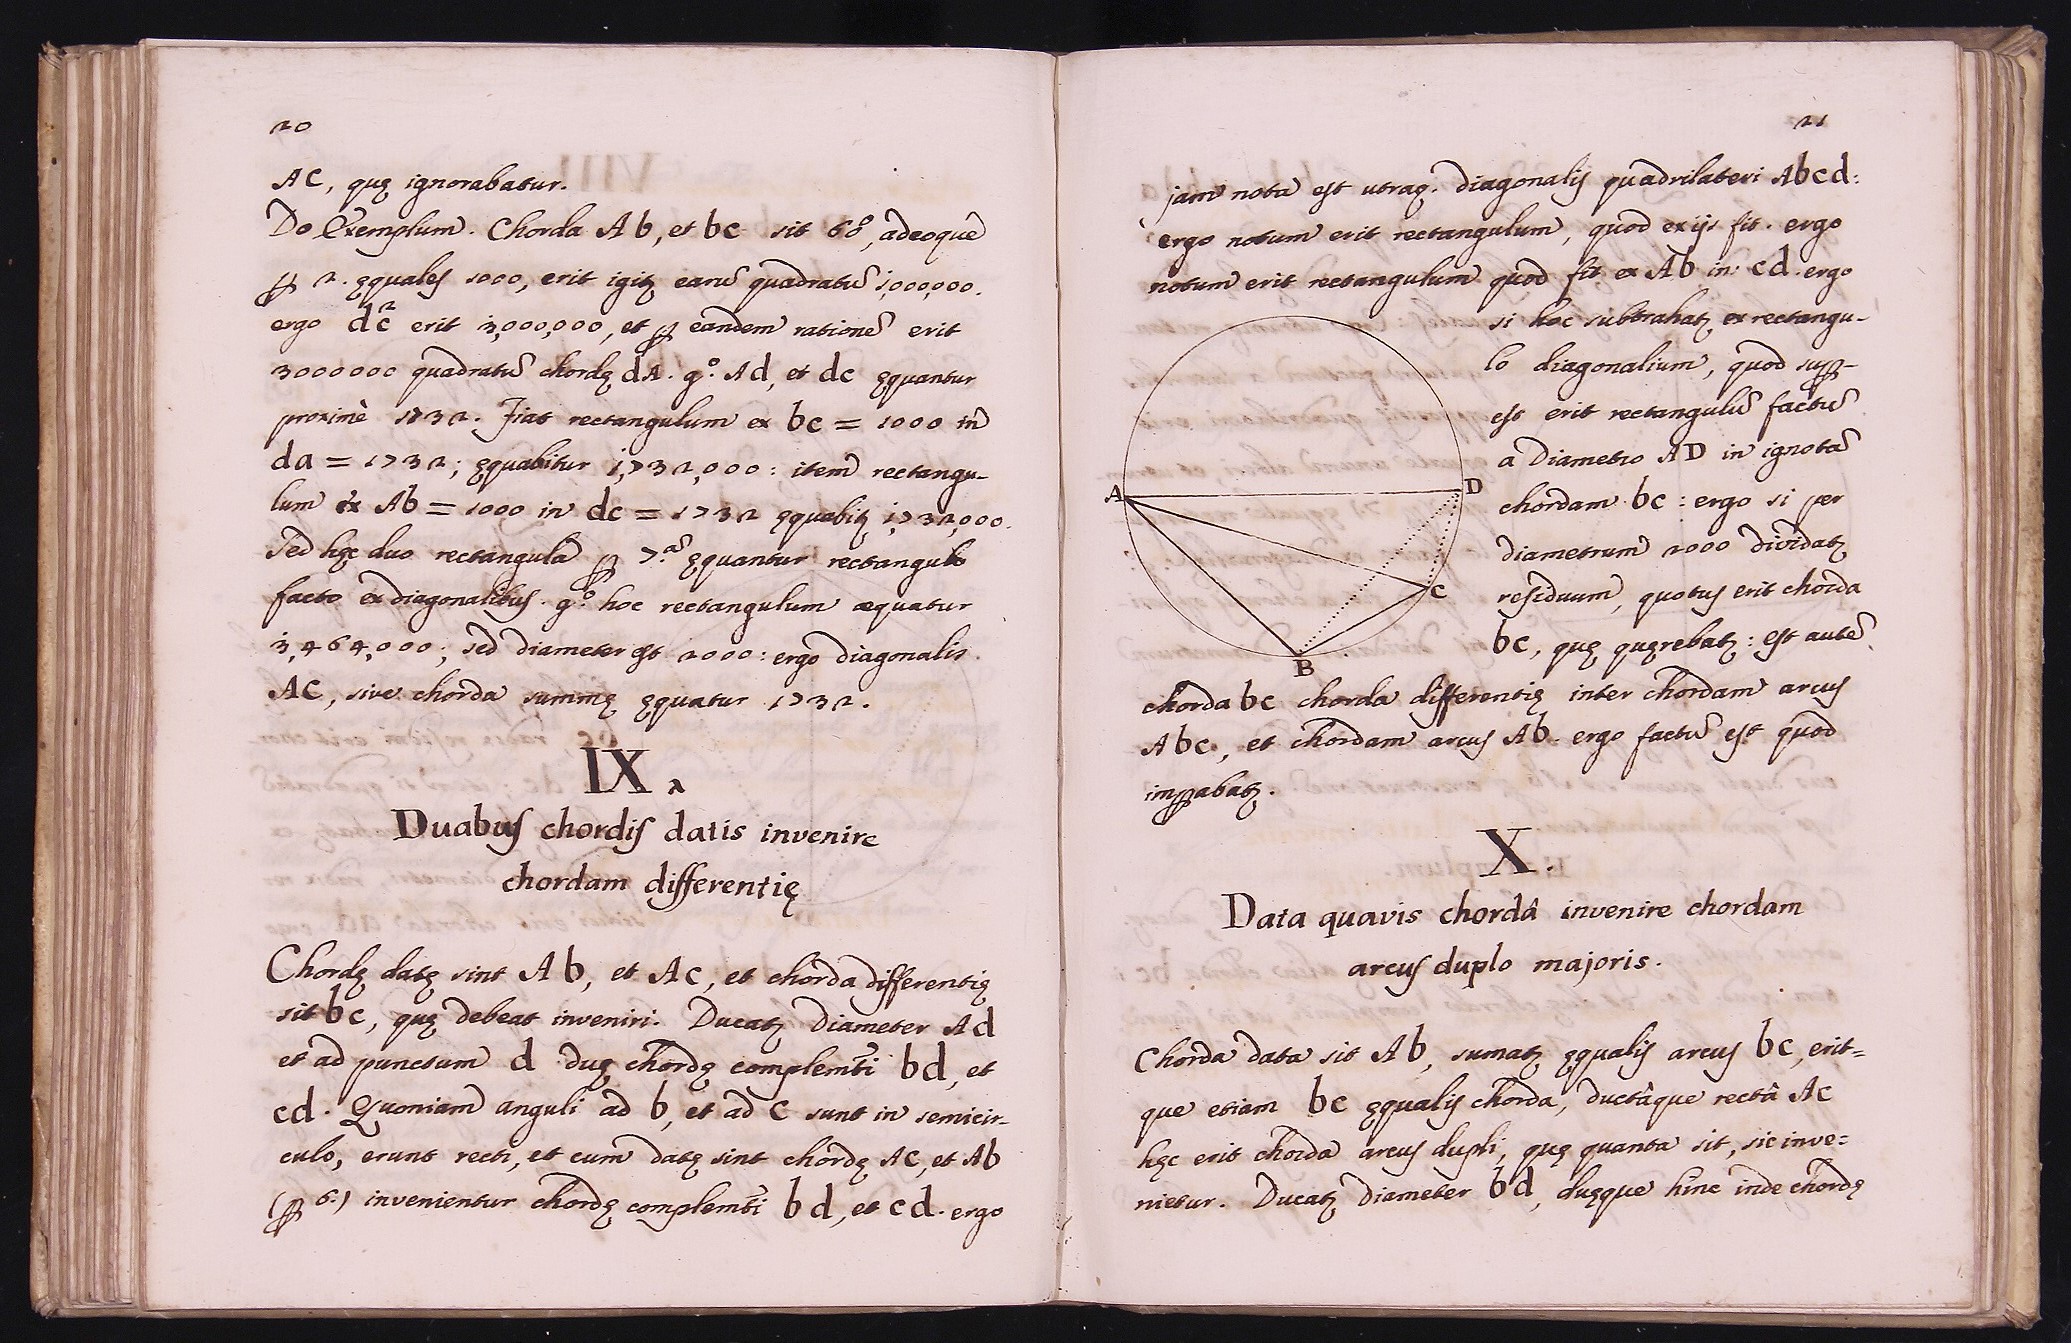 20
AC, quę ignorabatur.
Do Exemplum. Chorda Ab, et bc sit 60, adeoque
ꝑ 2. ęquales 1000, erit igitꝫ earũ quadratũ 1,000,000.
ergo dc² erit 3,000,000, et ꝑ eandem rationẽ erit
3000000 quadratũ chordę dA. gº. Ad, et dc ęquantur
proximè 1732. Fiat rectangulum ex bc = 1000 in
da = 1732; ęquabitur 1,732,000: item rectangu-
lum ex Ab = 1000 in dc = 1732 ęquabitꝫ 1,732,000.
Sed hęc duo rectangula ꝑ 7.ã ęquantur rectangulo
facto ex diagonalibus. gº. hoc rectangulum æquatur
3,464,000; sed diameter est 2000: ergo diagonalis
AC, sive chorda summę ęquatur 1732.
IX.
Duabus chordis datis invenire
chordam differentię
Chordę datę sint Ab, et Ac, et chorda differentię
sit bc, quę debeat inveniri. Ducatꝫ Diameter Ad
et ad punctum d duę chordę complemẽti bd, et
cd. Quoniam anguli ad b, et ad c sunt in semicir-
culo, erunt recti, et cum datę sint chordę AC, et Ab
(ꝑ 6.) invenientur chordę complemẽti bd, et cd. ergo
21
jam nota est utraq. diagonalis quadrilateri Abcd:
ergo notum erit rectangulum, quod ex ijs fit. ergo
notum erit rectangulum quod fit ex Ab in: cd. ergo
si hoc subtrahatꝫ ex rectangu-
lo diagonalium, quod suꝑ-
est erit rectangulũ factũ
a Diametro AD in ignotã
chordam bc: ergo si per
diametrum 2000 dividatꝫ
residuum, quotus erit chorda
bc, quę quęrebatꝫ: est autẽ
A
D
C
B
chorda bc chorda differentię inter chordam arcus
Abc, et chordam arcus Ab. ergo factũ est quod
imꝑabatꝫ.
X.
Data quavis chordâ invenire chordam
arcus duplo majoris.
Chorda data sit Ab, sumatꝫ ęqualis arcus bc, erit=
que etiam bc ęqualis chorda, ductâque rectâ Ac
hęc erit chorda arcus dupli, quę quanta sit, sic inve=
nietur. Ducatꝫ Diameter bd, duęque hinc inde chordę